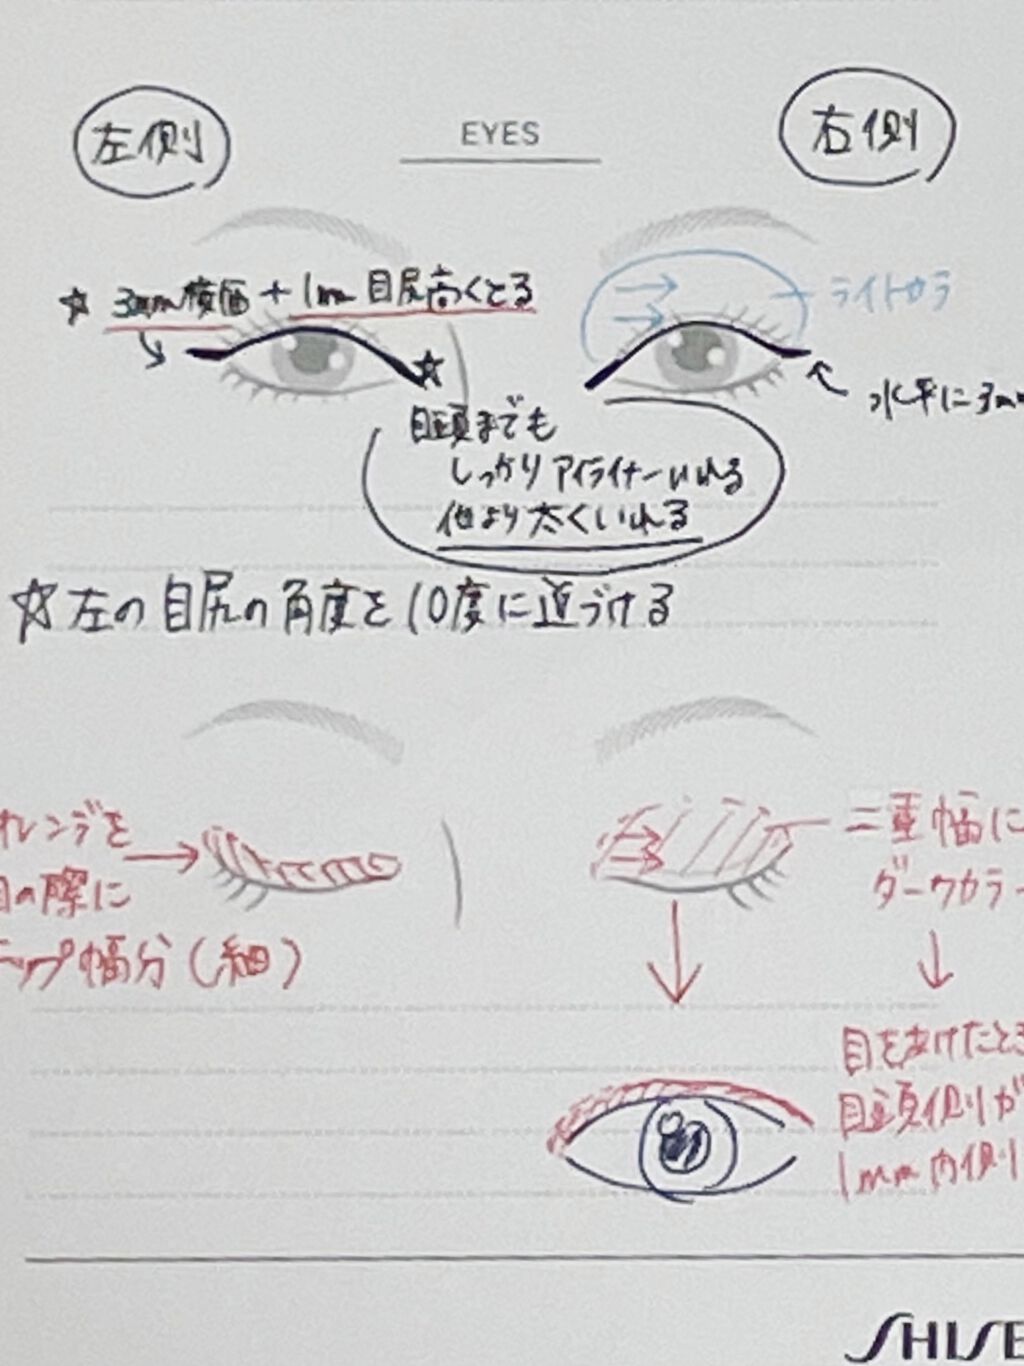 左側
EYES
右側
☆ 3mm横幅+1mm目尻高くとる
ライトカラ
水平に3mm
目頭までも
しっかりアイライナーいれる
他より太くいれる
☆左の目尻の角度を10度に近づける
オレンジを
目の際に
チップ幅分(細)
二重幅に
ダークカラー
目をあけたとき
目頭側が
1mm内側
SHISE